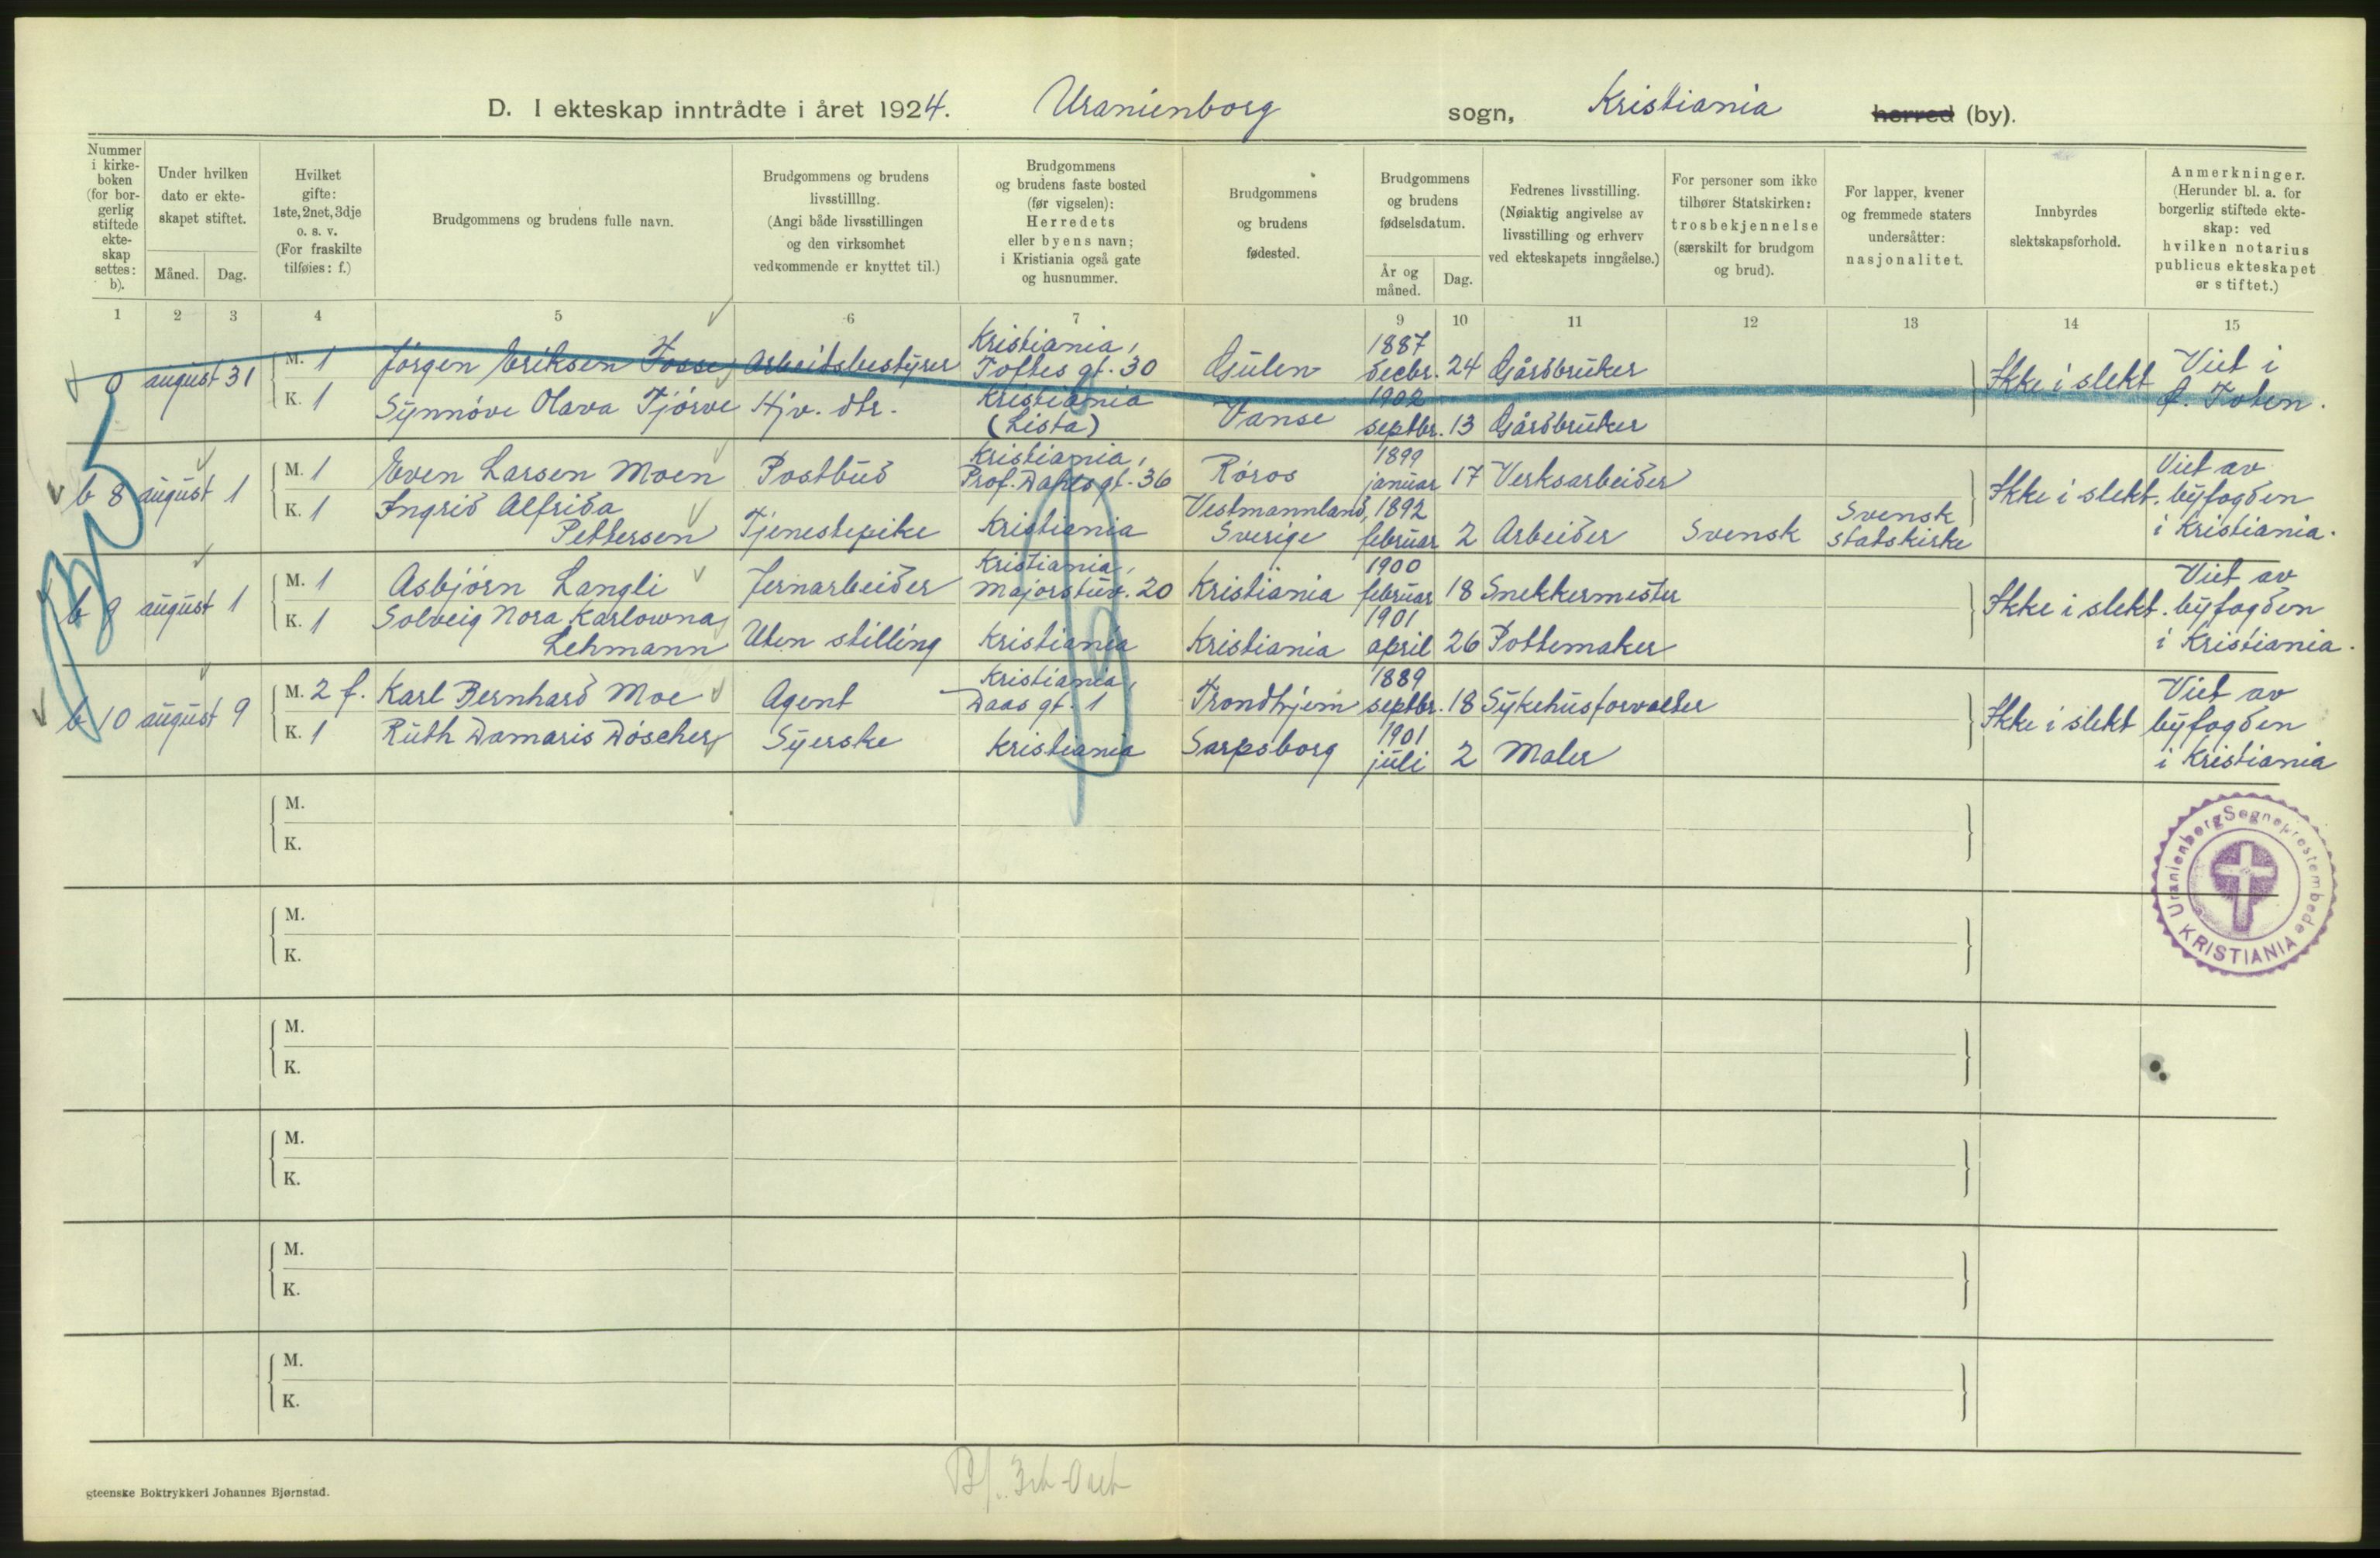 D. I ekteskap inntrådte i året 1924. Uranienborg sogn, Kristiania herred (by).
Nummer i kirke- boken (for bor- gerlig stiftede ekte- skap settes: b).
Under hvilken dato er ekte- skapet stiftet.
Måned. Dag.
Hvilket gifte: 1ste, 2net, 3dje o. s. v. (For fraskilte tilføies: f.)
Brudgommens og brudens fulle navn.
Brudgommens og brudens livsstilllng. (Angi både livsstillingen og den virksomhet vedkommende er knyttet til.)
Brudgommens og brudens faste bosted (før vigselen): Herredets eller byens navn; i Kristiania også gate og husnummer.
Brudgommens og brudens fødested.
Brudgommens og brudens fødselsdatum.
År og måned. Dag.
Fedrenes livsstilling. (Nøiaktig angivelse av livsstilling og erhverv ved ekteskapets inngåelse.)
For personer som ikke tilhører Statskirken: trosbekjennelse (særskilt for brudgom og brud).
For lapper, kvener og fremmede staters undersåtter: nasjonalitet.
Innbyrdes slektskapsforhold.
Anmerkninger. (Herunder bl. a. for borgerlig stiftede ekte- skap: ved hvilken notarius publicus ekteskapet er stiftet.)
1 2 3 4 5 6 7 8 9 10 11 12 13 14 15
0 august 31 M. 1 Jörgen Eriksen Fosse Arbeidsbestyrer Kristiania, Toftes gt. 30 Gulen 1887 decbr. 24 Gårdbruker Ikke i slekt Viet i Ø. Toten.
K. 1 Synnöve Olava Tjörve Hjv. dtr. Kristiania (Lista) Vanse 1902 septbr. 13 Gårdbruker
b 8 august 1 M. 1 Even Larsen Moen Postbud Kristiania, Prof. Dahls gt. 36 Röros 1899 januar 17 Verksarbeider Ikke i slekt. Viet av byfogden i Kristiania.
K. 1 Ingrid Alfrida Pettersen Tjenestepike Kristiania Vestmannland, Sverige 1892 februar 2 Arbeider Svensk Svensk statskirke
b 9 august 1 M. 1 Asbjörn Langli Jernarbeider Kristiania, Majorstuv. 20 Kristiania 1900 februar 18 Snekkermester Ikke i slekt. Viet av byfogden i Kristiania.
K. 1 Solveig Nora Karlowna Lehmann Uten stilling Kristiania Kristiania 1901 april 26 Pottemaker
b 10 august 9 M. 2 f. Karl Bernhard Moe Agent Kristiania, Daas gt. 1 Trondhjem 1889 septbr. 18 Sykehusforvalter Ikke i slekt Viet av byfogden i Kristiania
K. 1 Ruth Damaris Döscher Syerske Kristiania Sarpsborg 1901 juli 2 Maler
M.
K.
M.
K.
M.
K.
M.
K.
M.
K.
M.
K.
Uranienborg Sogneprestembede KRISTIANIA
gteenske Boktrykkeri Johannes Bjørnstad.